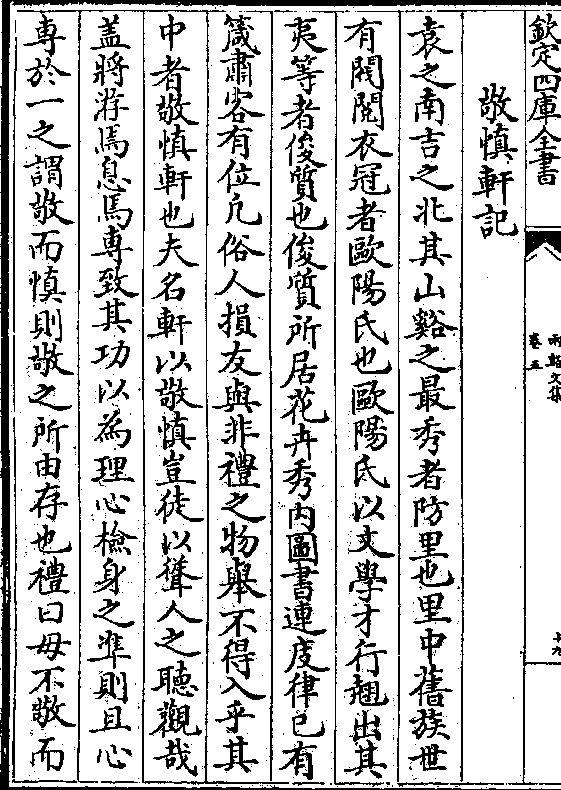 欽定四庫全書
兩谿文集
卷五
十九
敬慎軒記
袁之南吉之北其山谿之最秀者防里也里中舊族世
有閥閱衣冠者歐陽氏也歐陽氏以文學才行翹出其
夷等者俊質也俊質所居花卉秀内圖書連庋律已有
箴肅客有位凡俗人損友與非禮之物舉不得入乎其
中者敬慎軒也夫名軒以敬慎豈徒以聳人之聽觀哉
盖將游焉息焉専致其功以為理心檢身之凖則且心
専於一之謂敬而慎則敬之所由存也禮曰毋不敬而